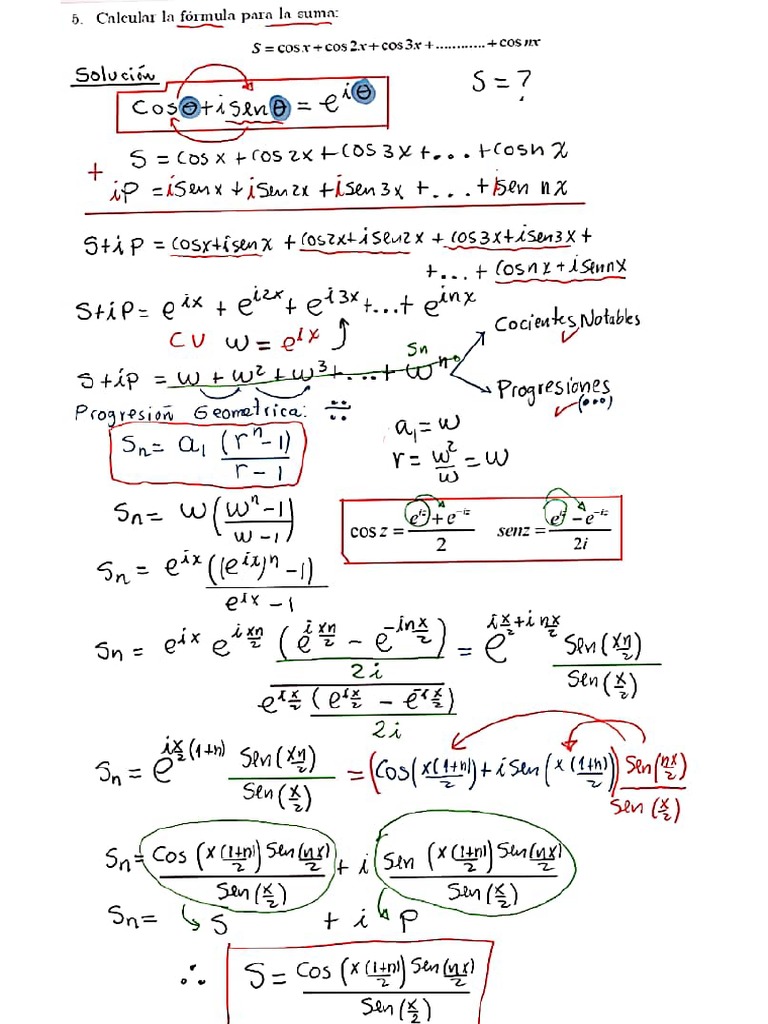 5. Calcular la fórmula para la suma:
S = cos x + cos 2x + cos 3x + ............ + cos nx
Solución
S = ?
Cosθ + i senθ = e^{iθ}
+ S = cosx + cos2x + cos3x + ... + cosnx
iP = isenx + isen2x + isen3x + ... + isen nx
S+iP = cosx+isenx + cos2x+isen2x + cos3x+isen3x +
+... + cosnx + isennx
S+iP = e^{ix} + e^{i2x} + e^{i3x} +...+ e^{inx}
Cocientes Notables
CV w = e^{ix}
Sn
S+iP = w + w² + w³ + ... + wⁿ
Progresiones
(•••)
Progresión Geometrica: ÷÷
a₁ = w
Sn = a₁ (rⁿ-1)/(r-1)
r = w²/w = w
Sn = w((wⁿ-1)/(w-1))
cos z = (e^{iz} + e^{-iz})/2 senz = (e^{iz} - e^{-iz})/2i
Sn = e^{ix}((e^{ix})ⁿ-1)/(e^{ix}-1)
Sn = e^{ix} e^{i xn/2} (e^{i xn/2} - e^{-i nx/2})/2i / e^{i x/2} (e^{i x/2} - e^{-i x/2})/2i = e^{i x/2 + i nx/2} Sen(xn/2)/Sen(x/2)
Sn = e^{ix/2 (1+n)} Sen(xn/2)/Sen(x/2) = (Cos(x(1+n)/2) + i Sen(x(1+n)/2)) Sen(nx/2)/Sen(x/2)
Sn = Cos(x(1+n)/2) Sen(nx/2)/Sen(x/2) + i Sen(x(1+n)/2) Sen(nx/2)/Sen(x/2)
Sn = S + i P
∴ S = Cos(x(1+n)/2) Sen(nx/2)/Sen(x/2)